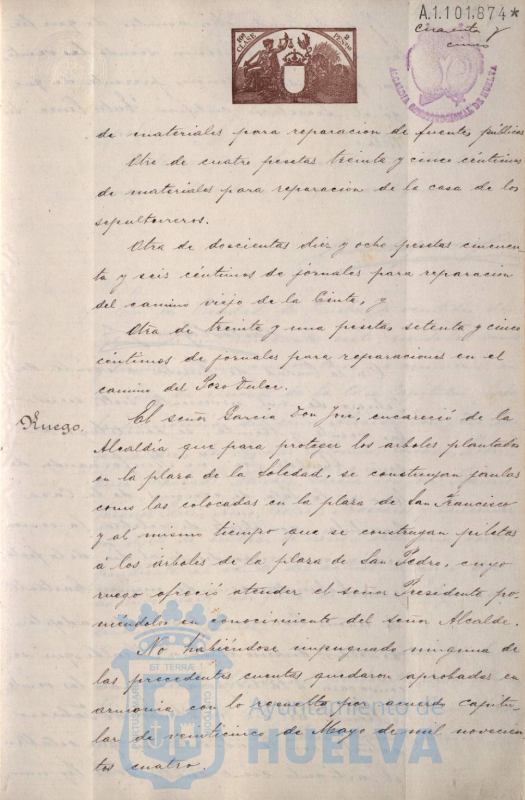 A.1.101,874*
cuarenta y
cinco
10ª CLASE 2 PESETAS
ALCALDIA CONSTITUCIONAL DE HUELVA
de materiales para reparacion de fuentes públicas
Otra de cuatro pesetas treinta y cinco céntimos
de materiales para reparacion de la casa de los
sepultureros.
Otra de doscientas diez y ocho pesetas cincuen-
ta y seis céntimos de jornales para reparacion
del camino viejo de la Cinta, y
Otra de treinta y una pesetas, setenta y cinco
céntimos de jornales para reparaciones en el
camino del Poso dulce.
Ruego.
El señor Garcia Don José, encareció de la
Alcaldía que para proteger los arboles plantados
en la plaza de la Soledad, se construyan jaulas
como las colocadas en la plaza de San Francisco
y al mismo tiempo que se construyan piletas
á los árboles de la plaza de San Pedro, cuyo
ruego ofreció atender el señor Presidente po-
niéndolos en conocimiento del señor Alcalde.
No habiéndose impugnado ninguna de
las precedentes cuentas quedaron aprobadas en
armonia con lo resuelto por acuerdo capitu-
lar de veinticinco de Mayo de mil novecien-
tos cuatro.
PORTUS MARIS ET TERRAE CUSTODIA
Ayuntamiento de
HUELVA